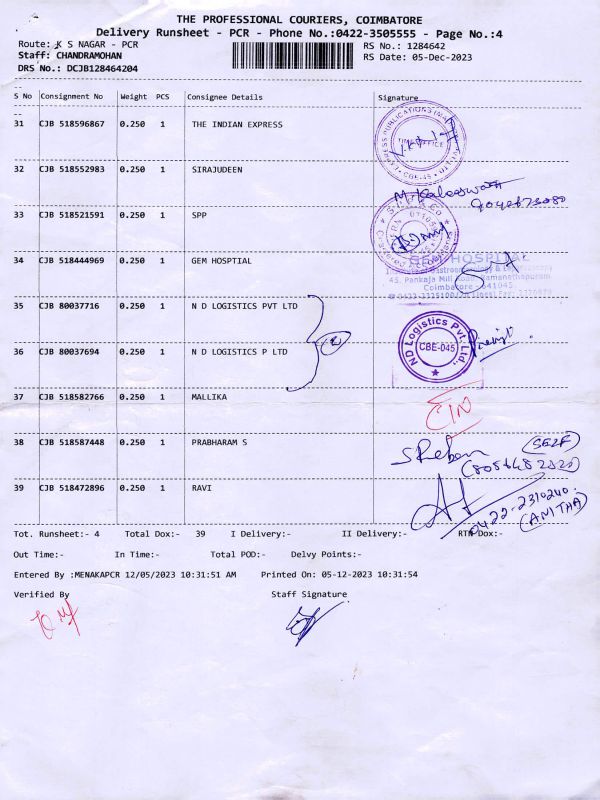 THE PROFESSIONAL COURIERS, COIMBATORE
Delivery Runsheet - PCR - Phone No.:0422-3505555 - Page No.:4
Route: K S NAGAR - PCR
RS No.: 1284642
Staff: CHANDRAMOHAN
RS Date: 05-Dec-2023
DRS No.: DCJB128464204
S No Consignment No Weight PCS Consignee Details Signature
31 CJB 518596867 0.250 1 THE INDIAN EXPRESS
TIME OFFICE
CBE-45
32 CJB 518552983 0.250 1 SIRAJUDEEN
33 CJB 518521591 0.250 1 SPP
34 CJB 518444969 0.250 1 GEM HOSPTIAL
GEM HOSPITAL
45, Pankaja Mill Road, Ramanathapuram
Coimbatore - 641045.
35 CJB 80037716 0.250 1 N D LOGISTICS PVT LTD
ND Logistics Pvt. Ltd.,
CBE-045
36 CJB 80037694 0.250 1 N D LOGISTICS P LTD
37 CJB 518582766 0.250 1 MALLIKA
38 CJB 518587448 0.250 1 PRABHARAM S
(SELF)
39 CJB 518472896 0.250 1 RAVI
0422-2310240.
(ANITHA)
Tot. Runsheet:- 4 Total Dox:- 39 I Delivery:- II Delivery:- RTN Dox:-
Out Time:- In Time:- Total POD:- Delvy Points:-
Entered By :MENAKAPCR 12/05/2023 10:31:51 AM Printed On: 05-12-2023 10:31:54
Verified By Staff Signature